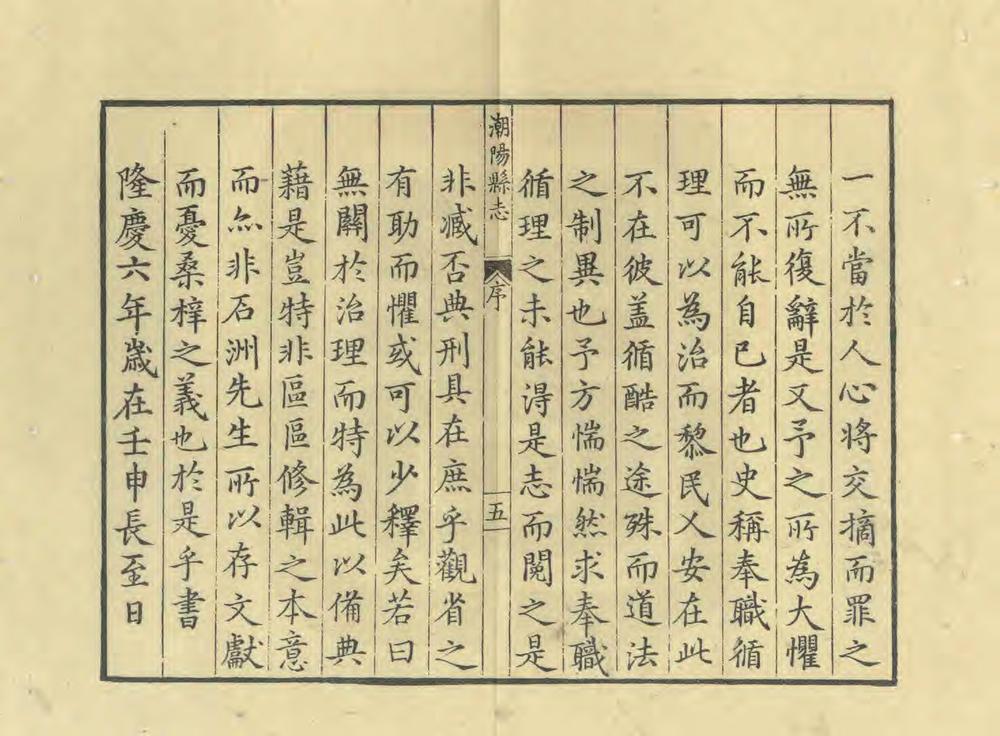 一不當於人心將交摘而罪之
無所復辭是又予之所為大懼
而不能自已者也史稱奉職循
理可以為治而黎民乂安在此
不在彼盖循酷之途殊而道法
之制異也予方惴惴然求奉職
循理之未能淂是志而閱之是
潮陽縣志
序
五
非臧否典刑具在庶乎觀省之
有助而懼或可以少釋矣若曰
無關於治理而特為此以備典
藉是豈特非區區修輯之本意
而尒非石洲先生所以存文獻
而憂桑梓之義也於是乎書
隆慶六年歲在壬申長至日